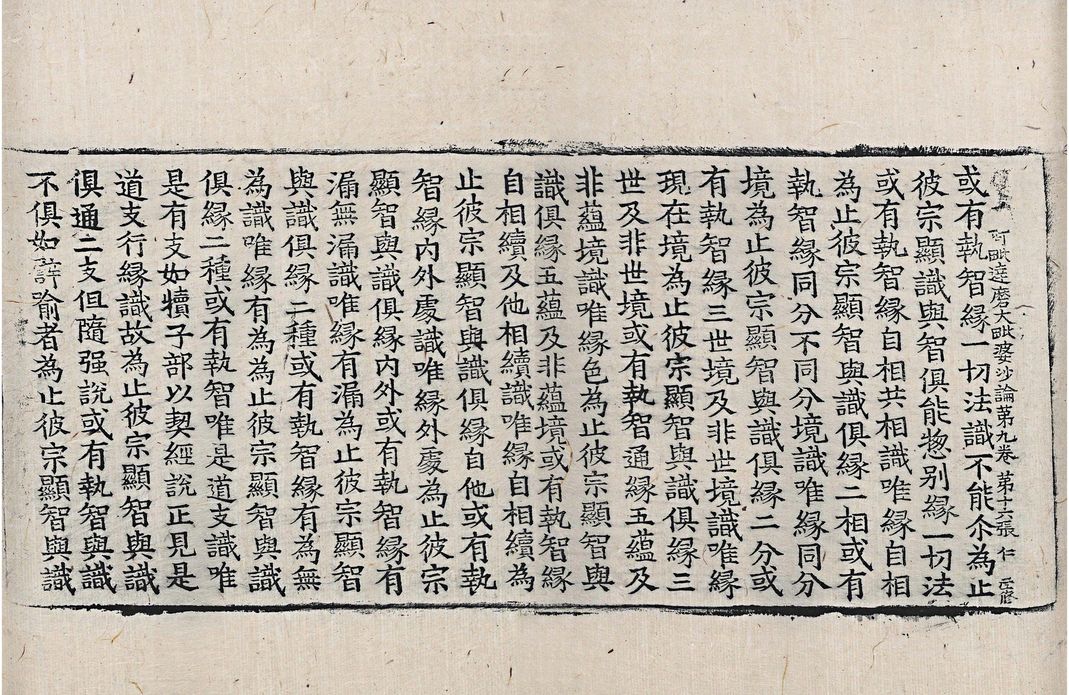 阿毗達磨大毗婆沙論第九卷 第十六張 仁
或有執智緣一切法識不能尒為止
彼宗顯識與智俱能惣別緣一切法
或有執智緣自相共相識唯緣自相
為止彼宗顯智與識俱緣二相或有
執智緣同分不同分境識唯緣同分
境為止彼宗顯智與識俱緣二分或
有執智緣三世境及非世境識唯緣
現在境為止彼宗顯智與識俱緣三
世及非世境或有執智通緣五蘊及
非蘊境識唯緣色為止彼宗顯智與
識俱緣五蘊及非蘊境或有執智緣
自相續及他相續識唯緣自相續為
止彼宗顯智與識俱緣自他或有執
智緣內外處識唯緣外處為止彼宗
顯智與識俱緣內外或有執智緣有
漏無漏識唯緣有漏為止彼宗顯智
與識俱緣二種或有執智緣有為無
為識唯緣有為為止彼宗顯智與識
俱緣二種或有執智唯是道支識唯
是有支如犢子部以契經說正見是
道支行緣識故為止彼宗顯智與識
俱通二支但隨强說或有執智與識
不俱如譬喻者為止彼宗顯智與識